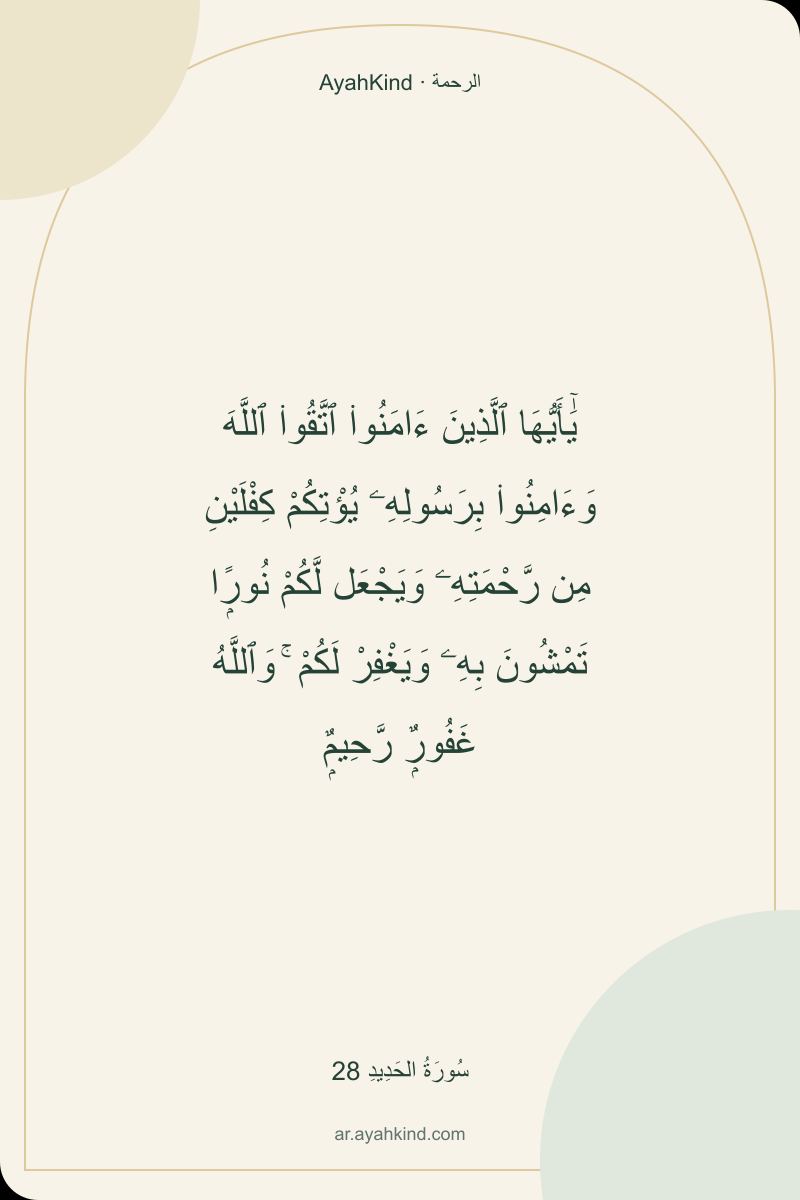 AyahKind · الرحمة
يَٰٓأَيُّهَا ٱلَّذِينَ ءَامَنُوا۟ ٱتَّقُوا۟ ٱللَّهَ
وَءَامِنُوا۟ بِرَسُولِهِۦ يُؤْتِكُمْ كِفْلَيْنِ
مِن رَّحْمَتِهِۦ وَيَجْعَل لَّكُمْ نُورًۭا
تَمْشُونَ بِهِۦ وَيَغْفِرْ لَكُمْ ۚ وَٱللَّهُ
غَفُورٌۭ رَّحِيمٌۭ
سُورَةُ الحَدِيدِ 28
ar.ayahkind.com